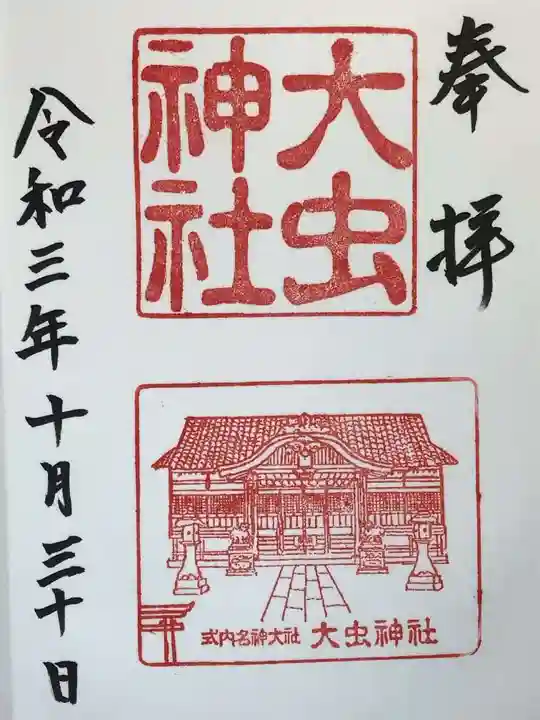 奉拝
大虫
神社
式内名神大社 大虫神社
令和三年十月三十日